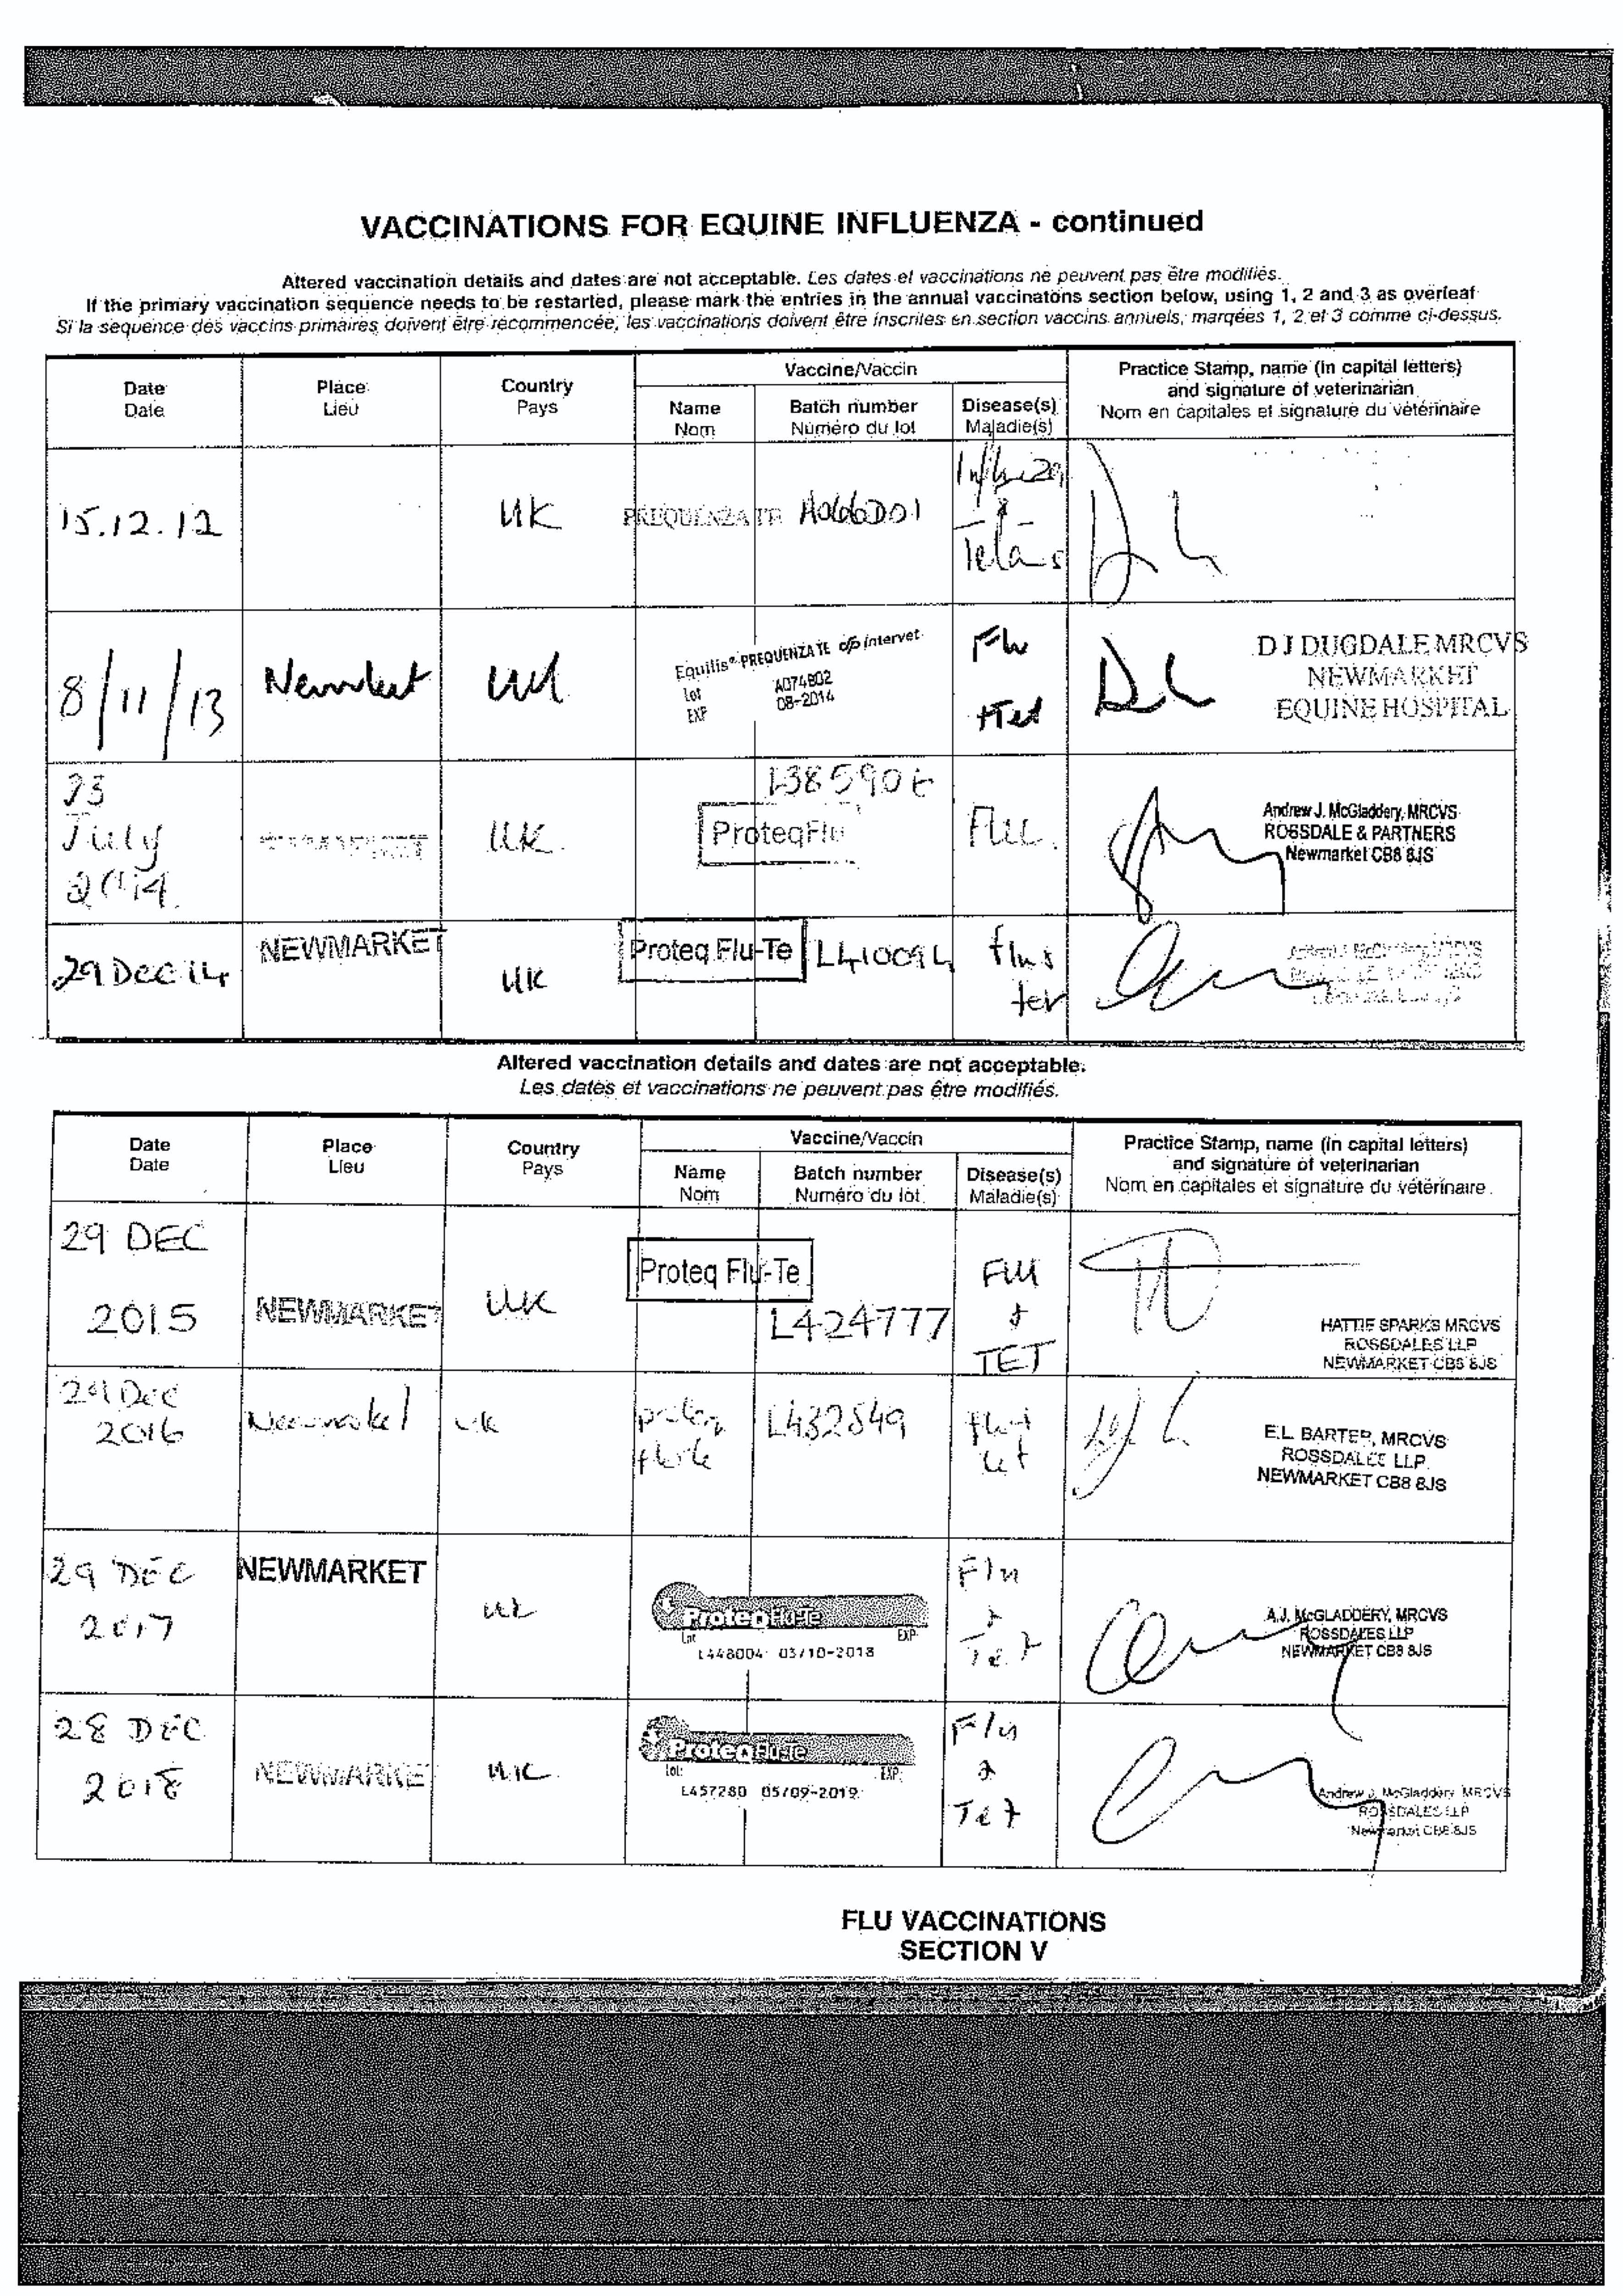 VACCINATIONS FOR EQUINE INFLUENZA - continued
Altered vaccination details and dates are not acceptable. Les dates et vaccinations ne peuvent pas être modifiés.
If the primary vaccination sequence needs to be restarted, please mark the entries in the annual vaccinatons section below, using 1, 2 and 3 as overleaf
Si la sequence des vaccins primaires doivent être recommencée, les vaccinations doivent être inscrites en section vaccins annuels, marqées 1, 2 et 3 comme ci-dessus.
Date
Date
Place
Lieu
Country
Pays
Vaccine/Vaccin
Name
Nom
Batch number
Numéro du lot
Disease(s)
Maladie(s)
Practice Stamp, name (in capital letters)
and signature of veterinarian
Nom en capitales et signature du vétérinaire
15.12.12
UK
PREQUENZA TE
A066D01
8/11/13
Newmarket
UK
Equilis® PREQUENZA TE Intervet
Lot A074B02
EXP 08-2014
Flu
+Tet
D J DUGDALE MRCVS
NEWMARKET
EQUINE HOSPITAL
July
2014.
UK.
ProteqFlu
Flu.
Andrew J. McGladdery, MRCVS
ROSSDALE & PARTNERS
Newmarket CB8 8JS
29 Dec 14
NEWMARKET
UK
Proteq Flu-Te
Altered vaccination details and dates are not acceptable.
Les dates et vaccinations ne peuvent pas être modifiés.
Date
Date
Place
Lieu
Country
Pays
Vaccine/Vaccin
Name
Nom
Batch number
Numéro du lot
Disease(s)
Maladie(s)
Practice Stamp, name (in capital letters)
and signature of veterinarian
Nom en capitales et signature du vétérinaire
29 DEC
2015
NEWMARKET
UK
Proteq Flu-Te
L424777
Flu
+
TET
HATTIE SPARKS MRCVS
ROSSDALES LLP
NEWMARKET CB8 8JS
29 Dec
2016
Newmarket
UK
L432849
E.L. BARTER, MRCVS
ROSSDALES LLP
NEWMARKET CB8 8JS
29 DEC
2017
NEWMARKET
UK
ProteqFlu-Te
Lot EXP
L448004 03/10-2018
Flu
+
Tet
A.J. McGLADDERY, MRCVS
ROSSDALES LLP
NEWMARKET CB8 8JS
28 DEC
2018
NEWMARKET
UK
ProteqFlu-Te
Lot EXP
L457280 05/09-2019
Flu
+
Tet
Andrew J. McGladdery MRCVS
ROSSDALES LLP
Newmarket CB8 8JS
FLU VACCINATIONS
SECTION V